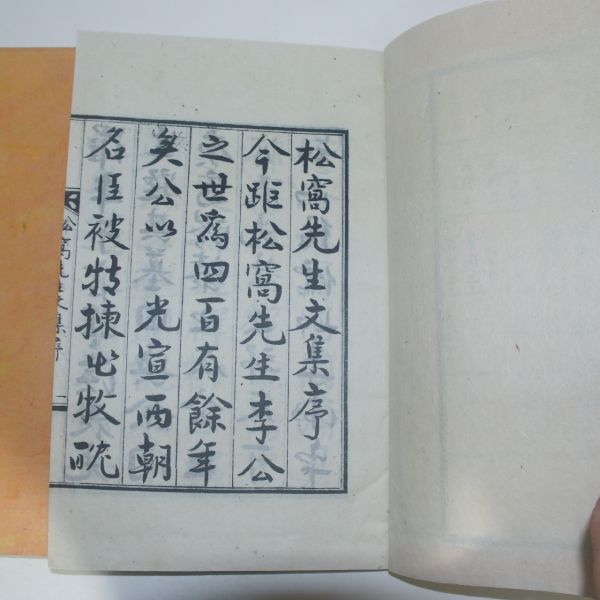 松窩先生文集序
今距松窩先生李公
之世爲四百有餘年
矣公以 光宣兩朝
名臣被特揀出牧
松窩先生文集序 一